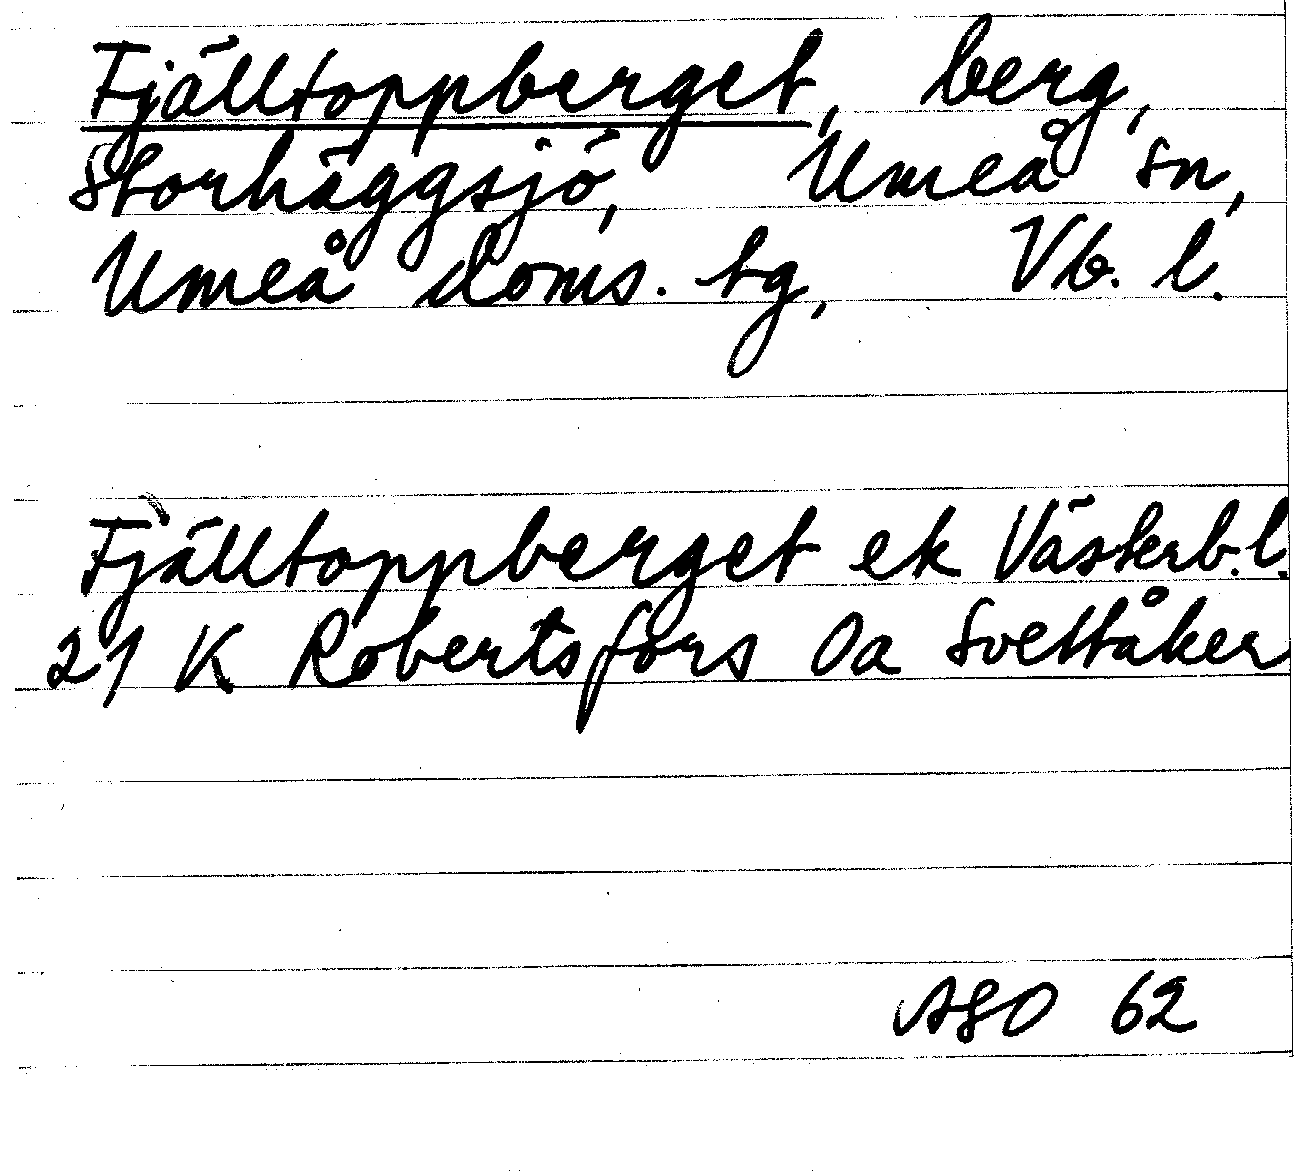 Fjälltoppberget, berg,
Storhäggsjö, Umeå sn,
Umeå doms. tg, Vb. l.
Fjälltoppberget ek Västerb. l.
21 K Robertsfors Oa Svettåker
ASO 62